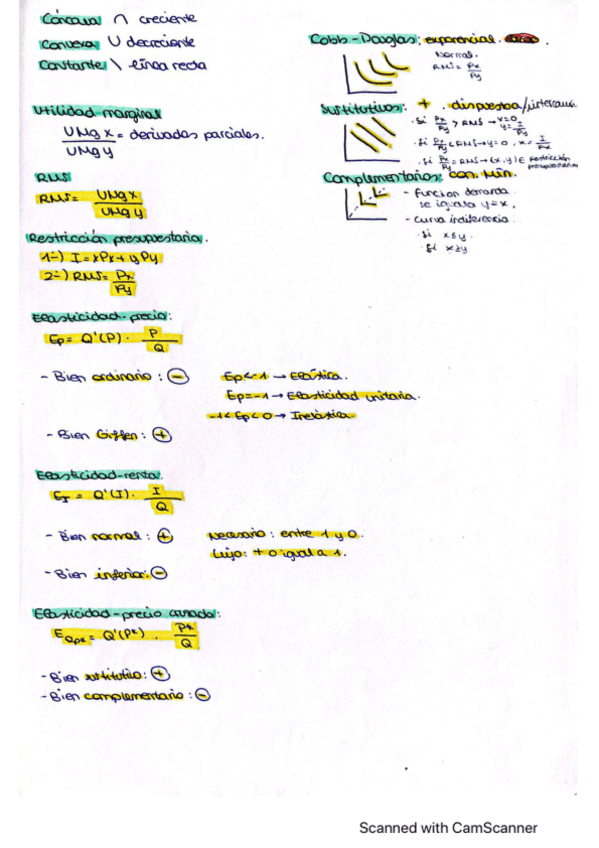 Cóncava ∩ creciente
Convexa ∪ decreciente
Constante \ línea recta
Utilidad marginal
UMg x / UMg y = derivadas parciales.
RMS
RMS = UMg x / UMg y
Restricción presupuestaria.
1º) I = xPx + yPy
2º) RMS = Px / Py
Elasticidad-precio:
Ep = Q'(P) · P / Q
- Bien ordinario: ⊖
Ep < -1 → Elástica.
Ep = -1 → Elasticidad unitaria.
-1 < Ep < 0 → Inelástica
- Bien Giffen: ⊕
Elasticidad-renta.
EI = Q'(I) · I / Q
- Bien normal: ⊕
Necesario: entre 1 y 0.
Lujo: + o igual a 1.
- Bien inferior: ⊖
Elasticidad-precio cruzada:
EQpx = Q'(Px) · Px / Q
- Bien sustitutivo: ⊕
- Bien complementario: ⊖
Cobb-Douglas: exponencial.
Normal.
RMS = Px / Py
Sustitutivos: + . dispuesta/intercam.
· Si Px / Py > RMS → x=0, y= I / Py
· Si Px / Py < RMS → y=0, x = I / Px
· Si Px / Py = RMS → (x,y) ∈ Restricción presupuestaria
Complementarios: con. Min.
- función demanda
se iguala y=x.
- curva indiferencia.
· Si x≤y.
· Si x≥y
Scanned with CamScanner